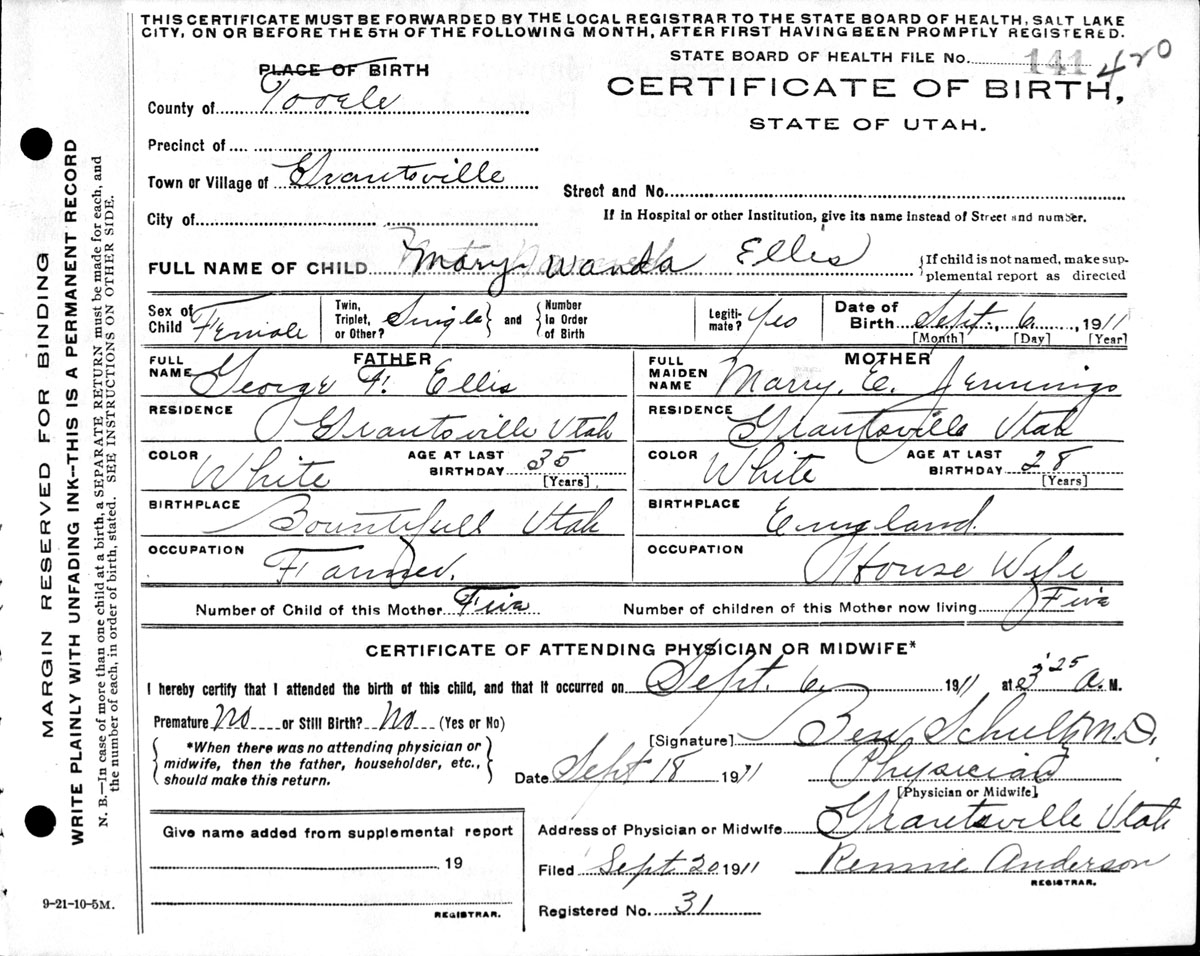 THIS CERTIFICATE MUST BE FORWARDED BY THE LOCAL REGISTRAR TO THE STATE BOARD OF HEALTH, SALT LAKE
CITY, ON OR BEFORE THE 5TH OF THE FOLLOWING MONTH, AFTER FIRST HAVING BEEN PROMPTLY REGISTERED.
STATE BOARD OF HEALTH FILE No. 141 420
PLACE OF BIRTH
CERTIFICATE OF BIRTH,
STATE OF UTAH.
County of Tooele
Precinct of
Town or Village of Grantsville
Street and No.
City of
If in Hospital or other Institution, give its name instead of Street and number.
FULL NAME OF CHILD Mary Wanda Ellis
{If child is not named, make sup-
plemental report as directed
Sex of Child Female
Twin, Triplet, or Other? Single } and { Number in Order of Birth
Legiti-mate? Yes
Date of Birth Sept. 6, 1911
[Month] [Day] [Year]
FATHER
FULL NAME George F. Ellis
RESIDENCE Grantsville Utah
COLOR White AGE AT LAST BIRTHDAY 35
[Years]
BIRTHPLACE Bountifull Utah
OCCUPATION Farmer.
MOTHER
FULL MAIDEN NAME Marry. E. Jennings
RESIDENCE Grantsville Utah
COLOR White AGE AT LAST BIRTHDAY 28
[Years]
BIRTHPLACE England.
OCCUPATION House Wife
Number of Child of this Mother Five Number of children of this Mother now living Five
CERTIFICATE OF ATTENDING PHYSICIAN OR MIDWIFE*
I hereby certify that I attended the birth of this child, and that it occurred on Sept. 6, 1911 at 3 25 a. M.
Premature No or Still Birth? No (Yes or No)
{ *When there was no attending physician or
midwife, then the father, householder, etc.,
should make this return. }
[Signature] Ben Schultz M.D.
Date Sept 18 1911 Physician
[Physician or Midwife]
Address of Physician or Midwife Grantsville Utah
Filed Sept 20 1911 Rennie Anderson
REGISTRAR.
Registered No. 31
Give name added from supplemental report
19
REGISTRAR.
9-21-10-5M.
MARGIN RESERVED FOR BINDING
WRITE PLAINLY WITH UNFADING INK--THIS IS A PERMANENT RECORD
N. B.—In case of more than one child at a birth, a SEPARATE RETURN must be made for each, and
the number of each, in order of birth, stated. SEE INSTRUCTIONS ON OTHER SIDE.